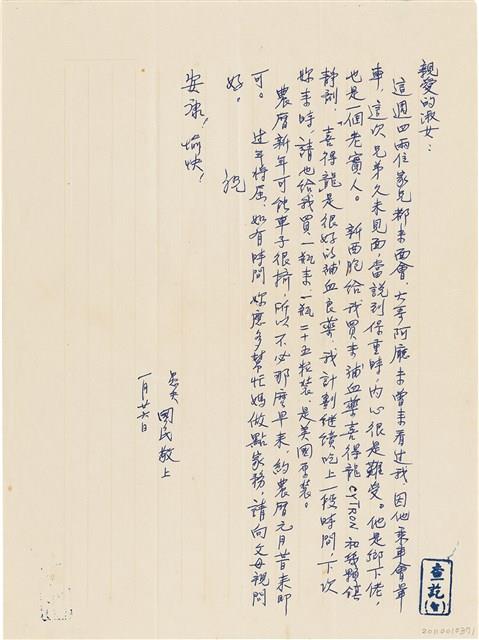 親愛的淑女：
這週四兩位家兄都來面會，大哥阿廳未曾來看过我，因他乘車會暈
車，這次兄弟久未見面，當說到保重時，內心很是難受。他是鄉下佬，
也是一個老實人。 新西胞給我買來補血藥喜得龍CYTRON和
鎮
靜劑，喜得龍是很好的補血良藥，我計劃继续吃上一段時間，下次
妳来時，請也给我買一瓶来，一瓶二十五粒装，是美國原装。
農曆新年可能車子很擠，所以不必那麼早来，約農曆元月昔来即
可。 过年将屆，如有時間妳應多幫忙媽做點家務，請向父母親問
好。 祝
安康！愉快！
國民敬上
一月廿六日
查訖
20110010371